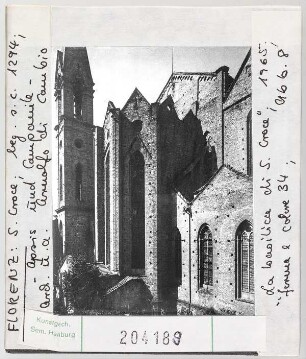 FLORENZ: S. Croce; beg. s.c. 1294;
Apsis und Campanile -
Arnolfo di Cambio
Kunstgesch.
Sem. Hamburg
204189
"La basilica di S. Croce", 1965.
forma e colore 34; Abb. 8